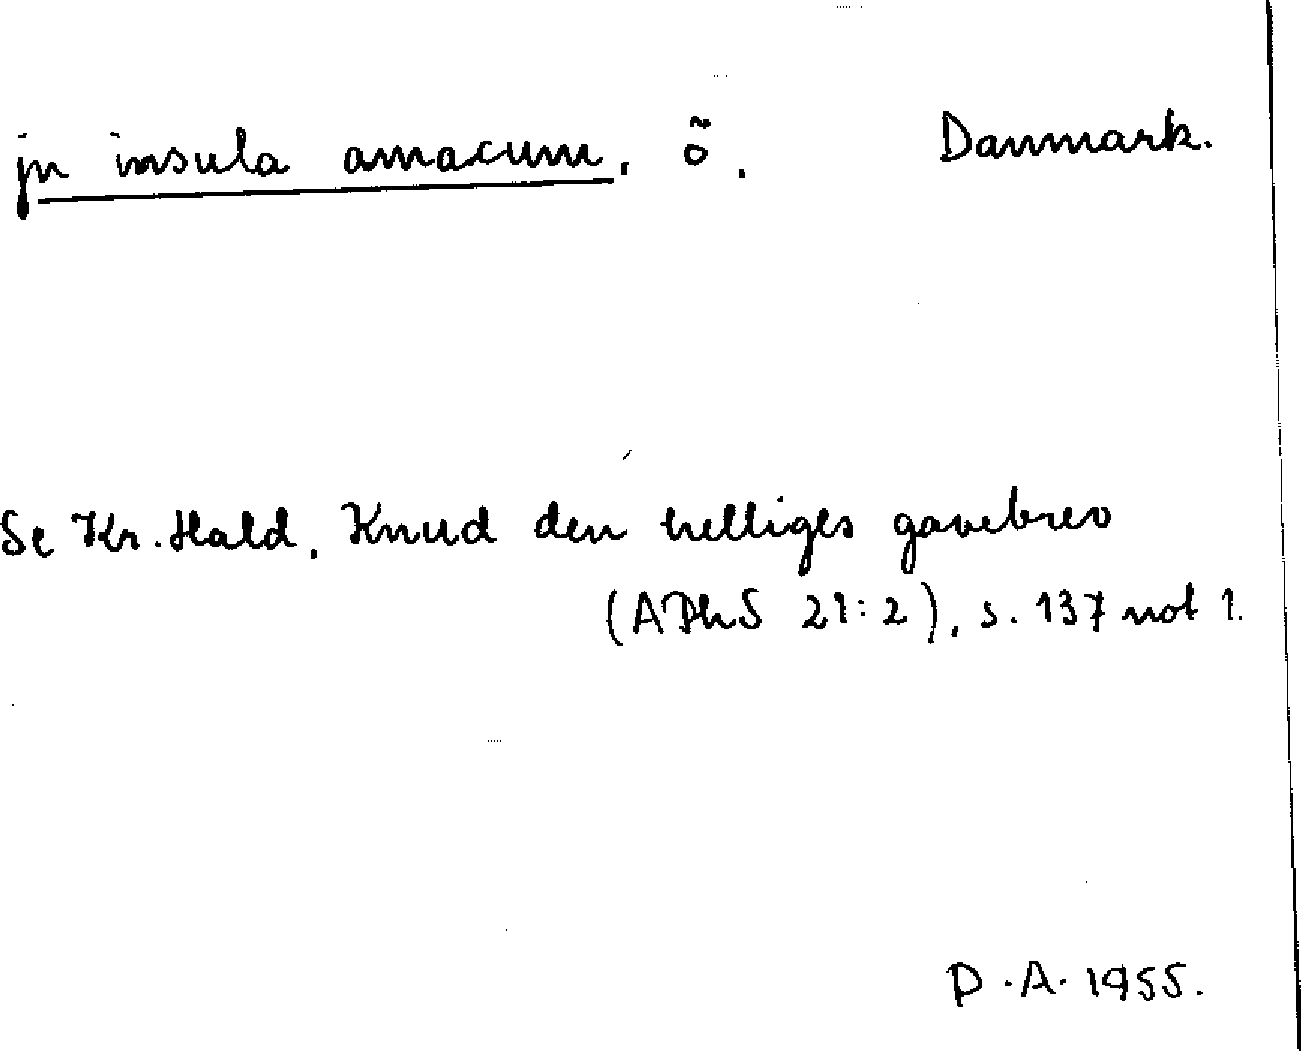 jn insula amacum, ö. Danmark.
Se Kr. Hald, Knud den helliges gavebrev
(APhS 21:2), s. 137 not 1.
D.A. 1955.